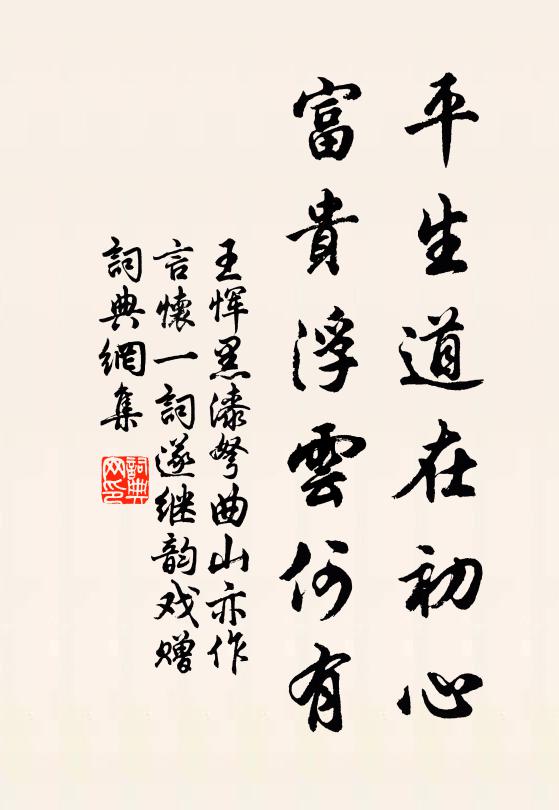 平生道在初心
富貴浮雲何有
王恽黑漆弩曲山亦作
言懷一詞遂继韵戏赠
詞典網集
詞典网印